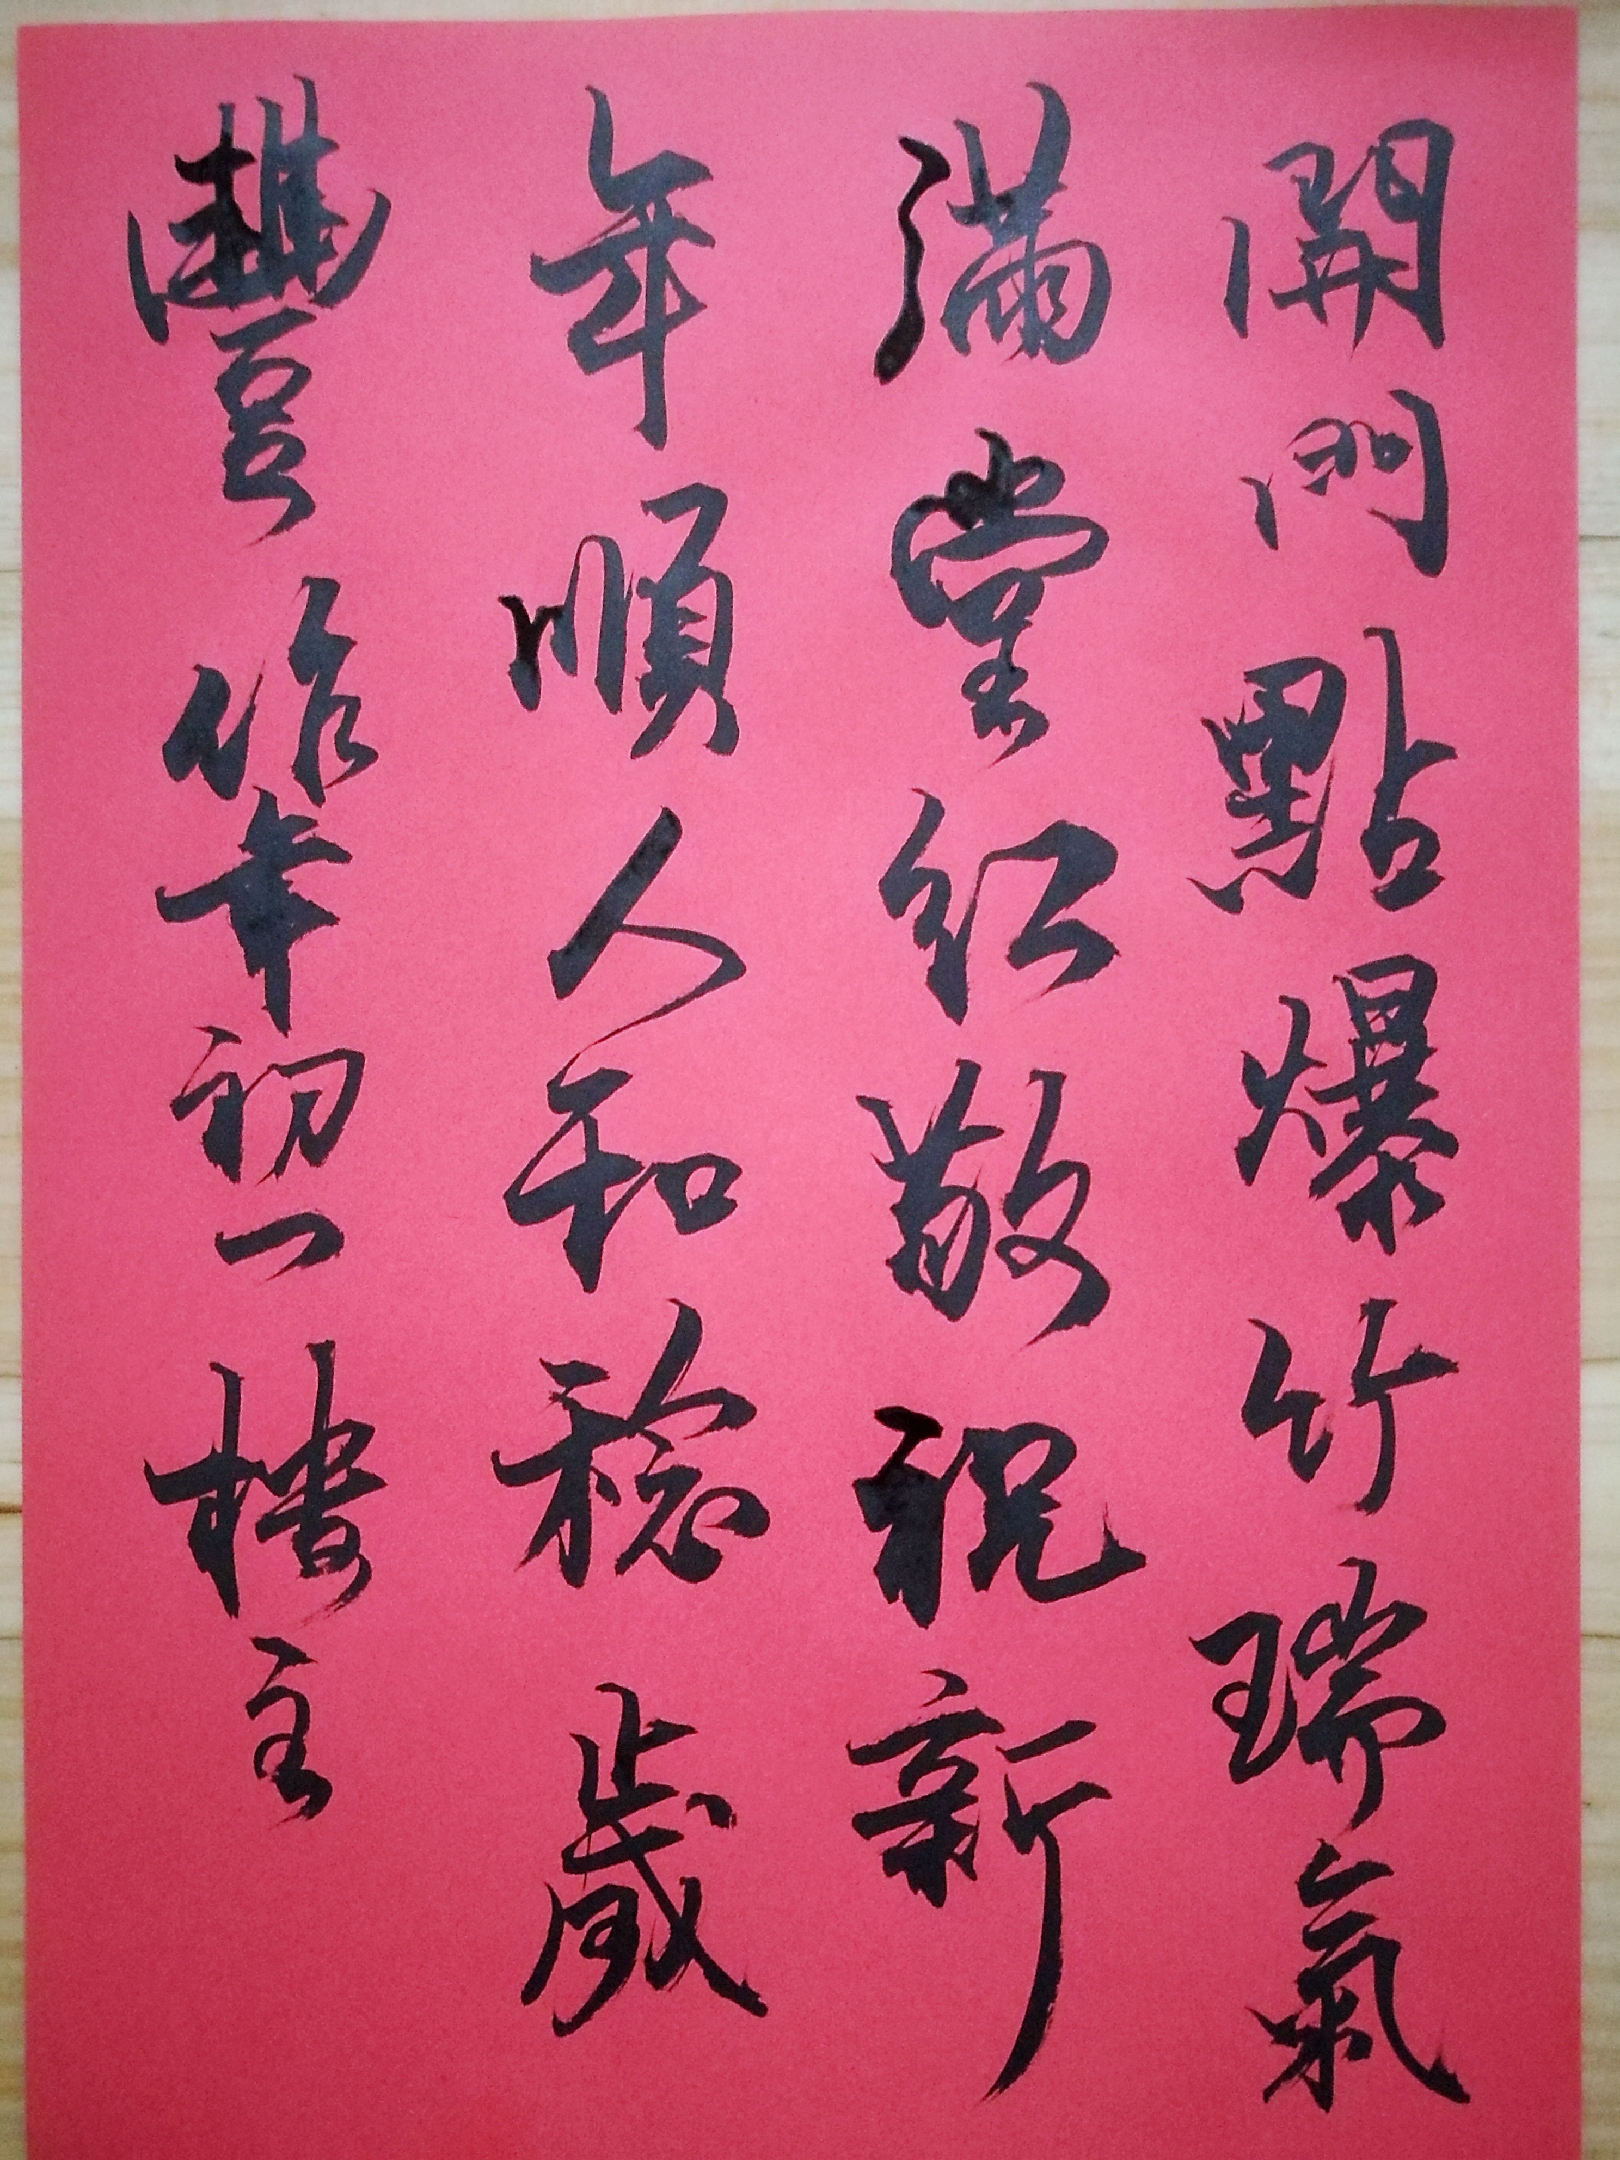 開門點爆竹瑞氣
滿堂紅敬祝新
年順人和稔歲
豐 年初一樓主